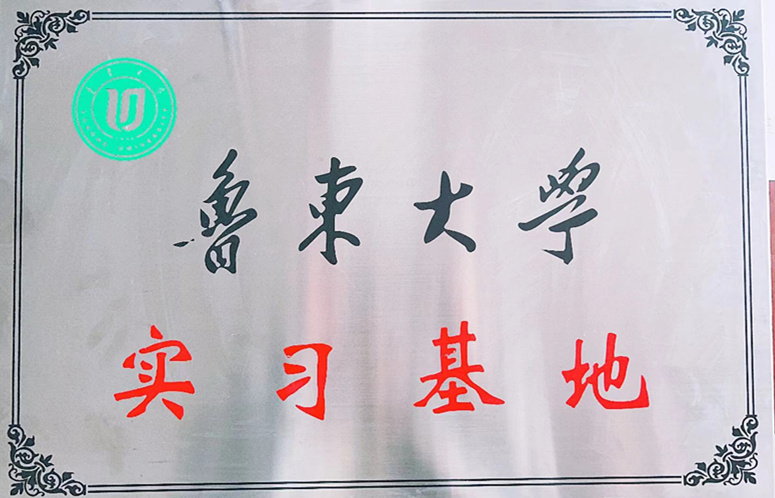 魯東大學
实习基地